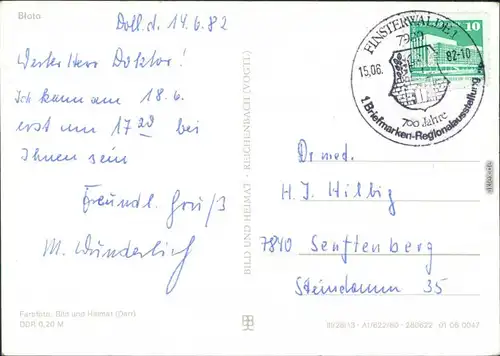 Bloto
Doll. d. 14.6.82
Werter Herr Doktor!
Ich kann am 18.6.
erst um 17 20 bei
Ihnen sein
Freundl. Gruß
M. Wunderlich
Farbfoto: Bild und Heimat (Derr)
DDR 0,20 M
BILD UND HEIMAT · REICHENBACH (VOGTL)
FINSTERWALDE 1
7980
15.06. 82-10
700 Jahre
1. Briefmarken-Regionalausstellung
10
Dr med.
H. J. Hilbig
7840 Senftenberg
Steindamm 35
III/26/13 · A1/622/82 · 280622 01 06 0047